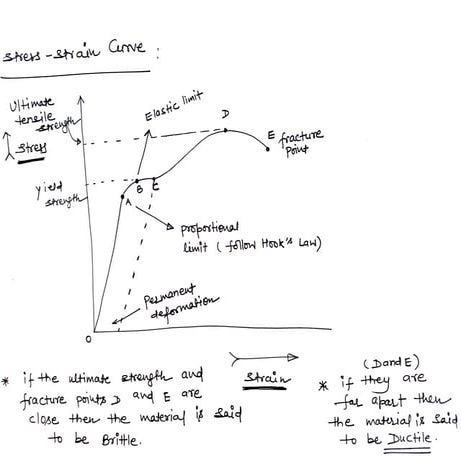 Stress-Strain Curve :
Ultimate
tensile
strength
Stress
Elastic limit
D
E
fracture
point
yield
strength
B
C
A
proportional
limit ( follow Hook's Law)
permanent
deformation
O
Strain
* if the ultimate strength and
fracture points D and E are
close then the material is said
to be Brittle.
(D and E)
* if they are
far apart then
the material is said
to be Ductile.